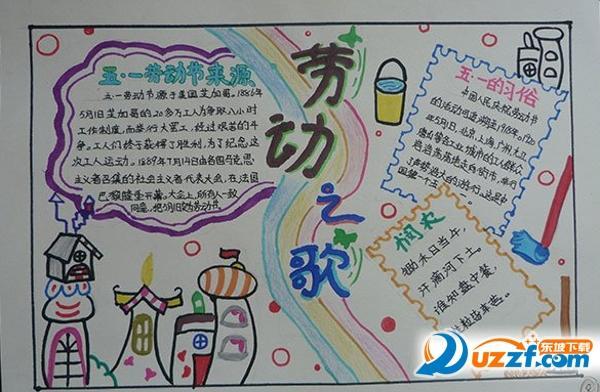 五·一劳动节来源
五·一劳动节源于美国芝加哥。1886年
5月1日芝加哥的20多万工人为争取八小时
工作制度,而举行大罢工,经过艰苦的斗
争。工人们终于获得了胜利,为了纪念这
次工人运动。1889年7月14日由各国马克思
主义者召集的社会主义者代表大会,在法国
巴黎隆重开幕。大会上,所有人一致
同意,把5月1日定为劳动节。
劳动之歌
五·一的习俗
中国人民庆祝劳动节
的活动可追溯至1918年。1920
年5月1日,北京、上海、广州、九江
唐山等各工业城市的工人群众
浩浩荡荡地走向街市、举行
了声势浩大的游行、这是中
国第一个
悯农
锄禾日当午,
汗滴河下土。
谁知盘中餐,
粒粒皆辛苦。
东坡下载
uzzf.com